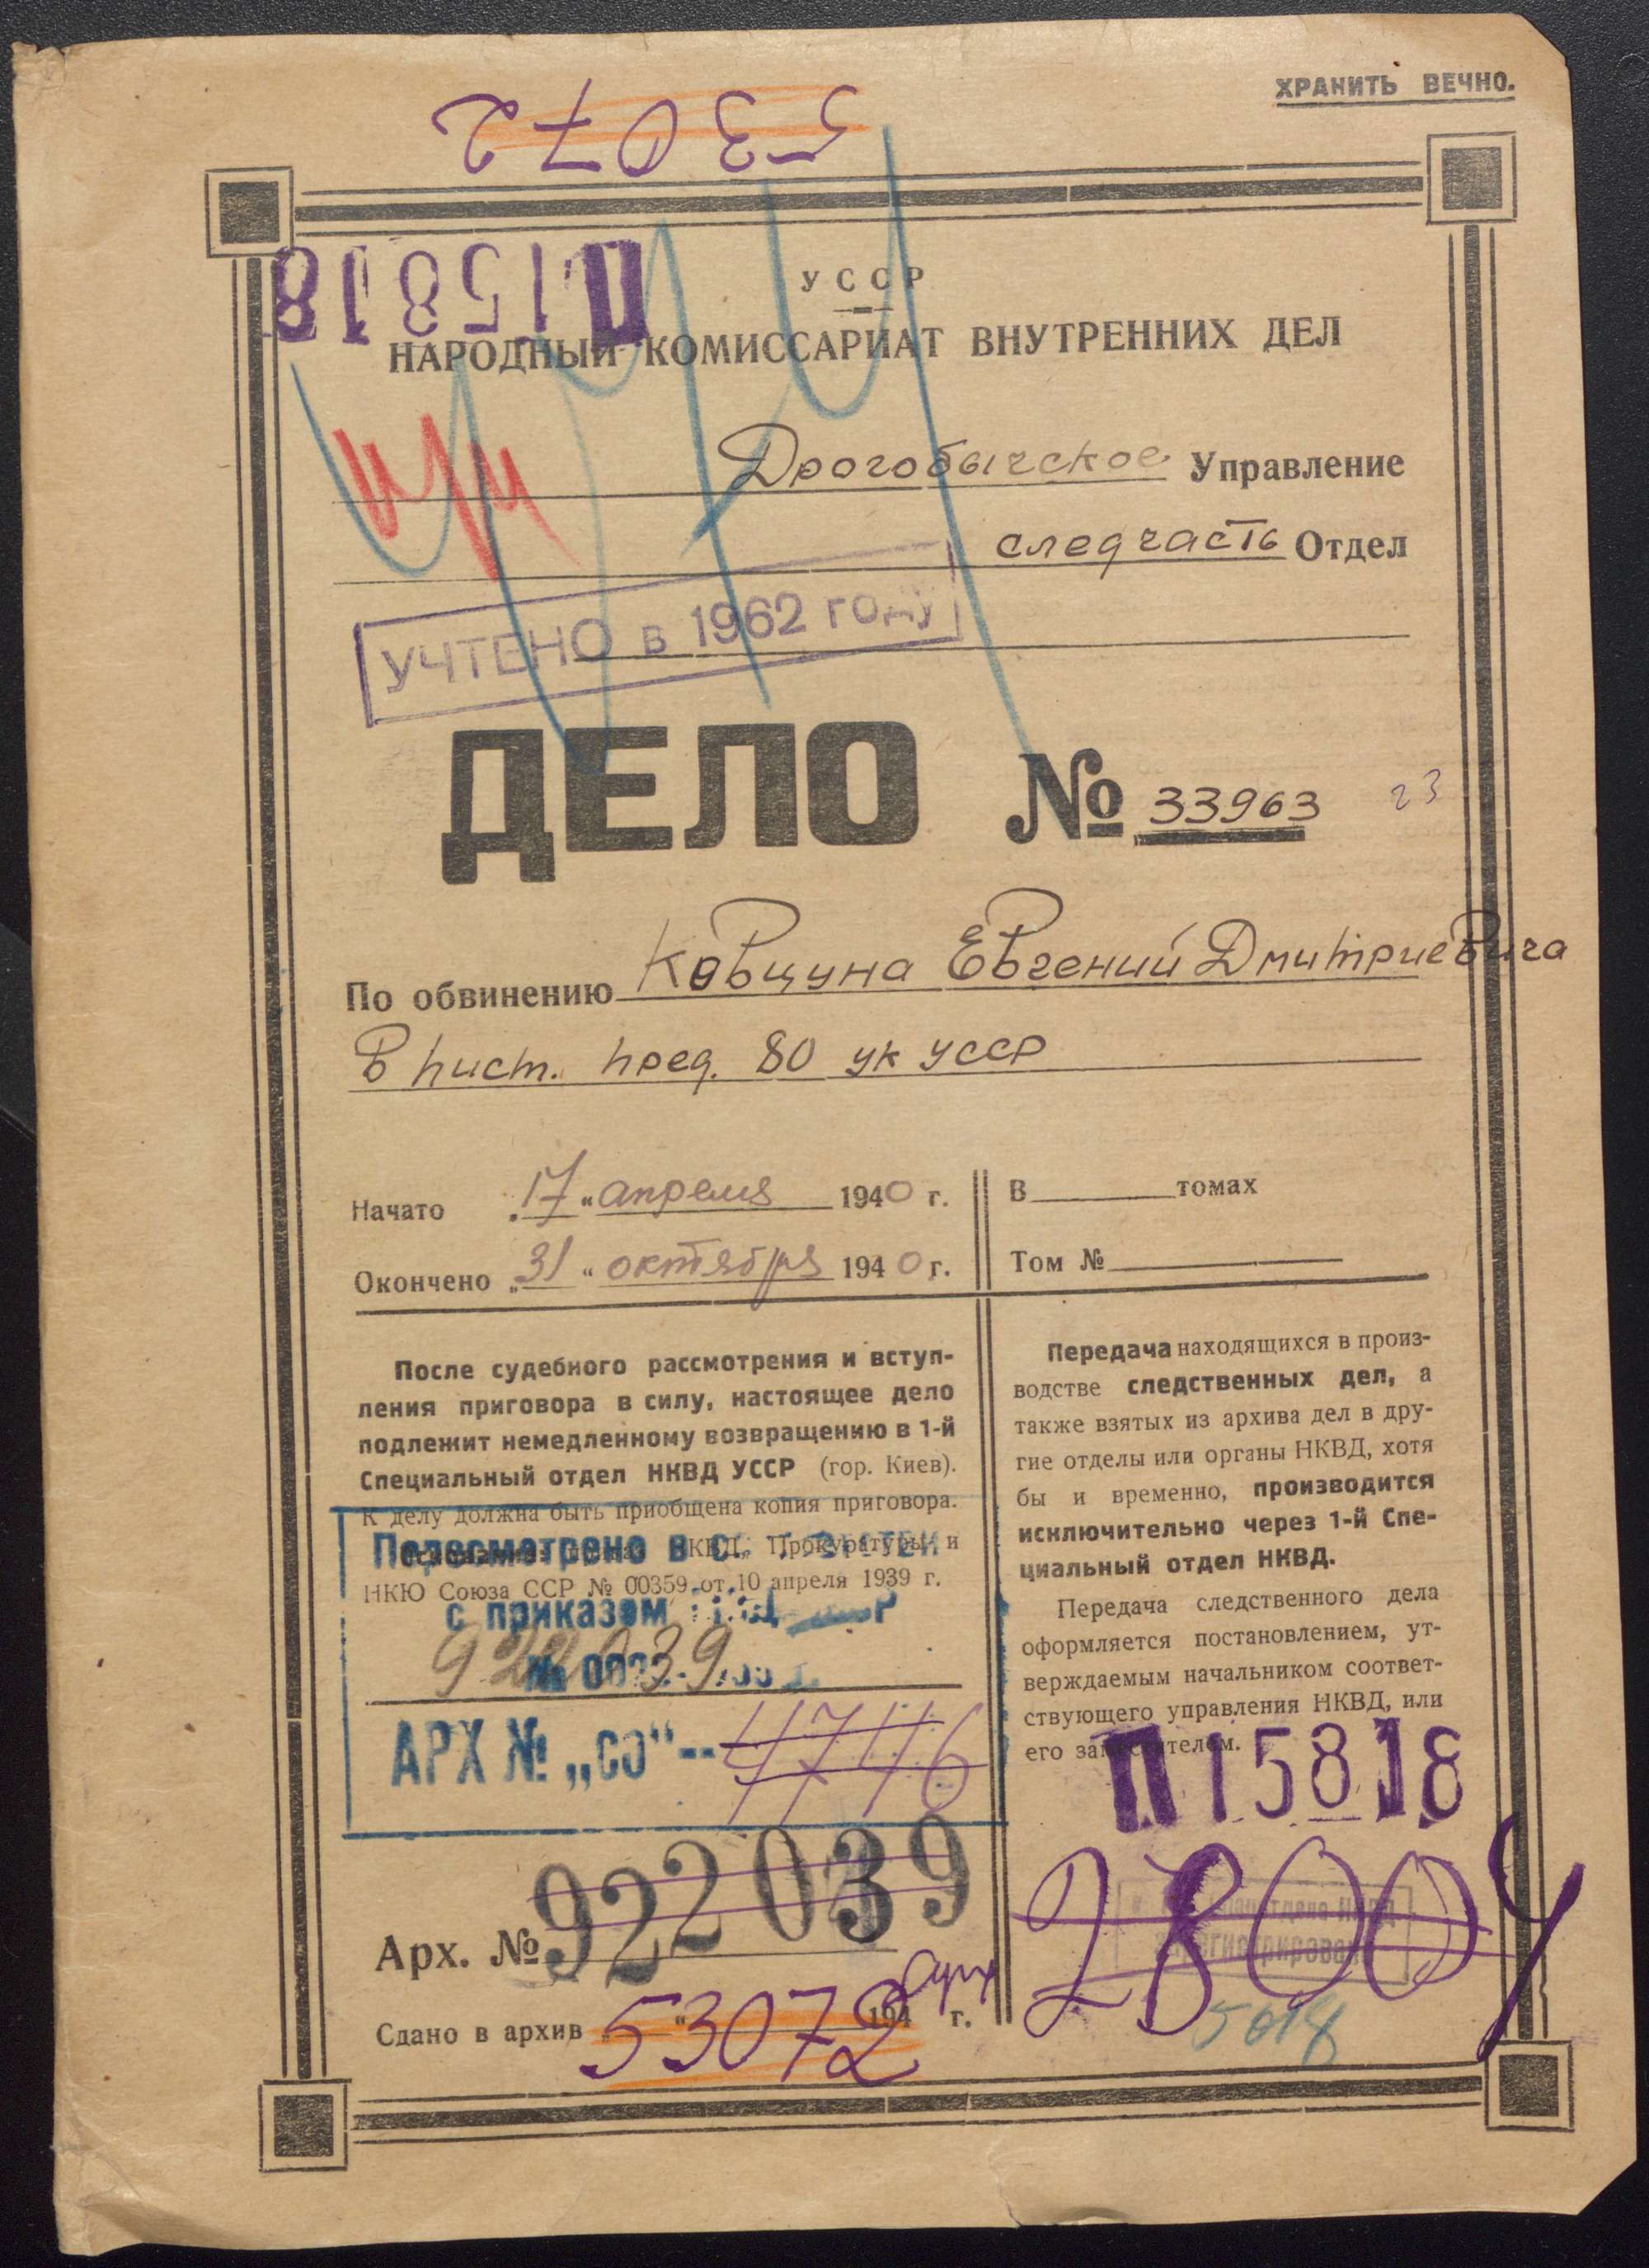 ХРАНИТЬ ВЕЧНО.
53072
П15818
УССР
НАРОДНЫЙ КОМИССАРИАТ ВНУТРЕННИХ ДЕЛ
Дрогобычское Управление
следчасть Отдел
УЧТЕНО в 1962 году
ДЕЛО № 33963 23
По обвинению Ковцуна Евгений Дмитриевича
В пист. пред. 80 ук УССР
Начато „17“ апреля 1940 г.
Окончено „31“ октября 1940 г.
В томах
Том №
После судебного рассмотрения и вступ-
ления приговора в силу, настоящее дело
подлежит немедленному возвращению в 1-й
Специальный отдел НКВД УССР (гор. Киев).
К делу должна быть приобщена копия приговора.
Прокуратуры и
НКЮ Союза ССР № 00359 от 10 апреля 1939 г.
Пересмотрено в
с приказом
АРХ № „СО“-- 4746
Арх. № 922039
Сдано в архив „ “ 194 г.
53072 арх
Передача находящихся в произ-
водстве следственных дел, а
также взятых из архива дел в дру-
гие отделы или органы НКВД, хотя
бы и временно, производится
исключительно через 1-й Спе-
циальный отдел НКВД.
Передача следственного дела
оформляется постановлением, ут-
верждаемым начальником соответ-
ствующего управления НКВД, или
его заместителем.
П15818
28009